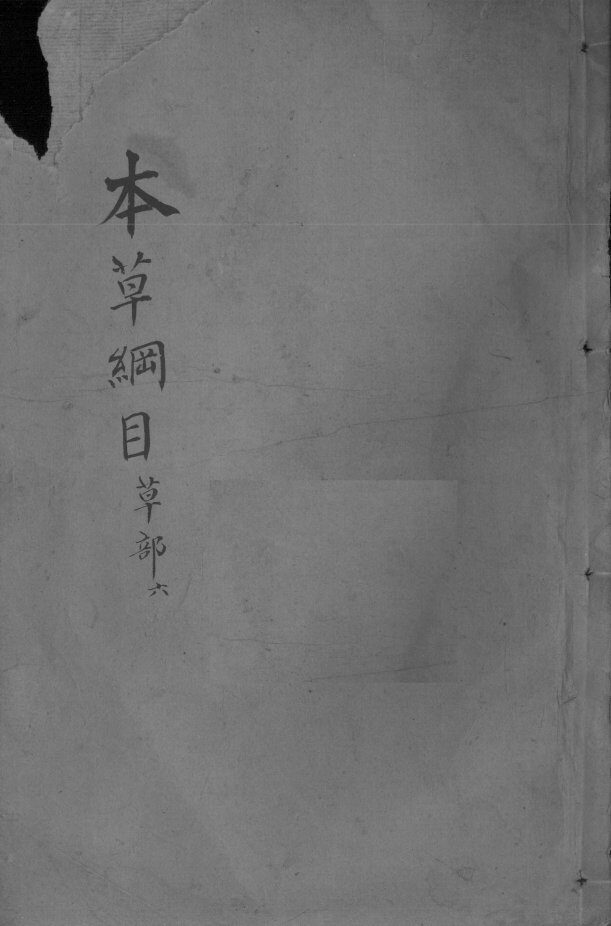 本草綱目草部六